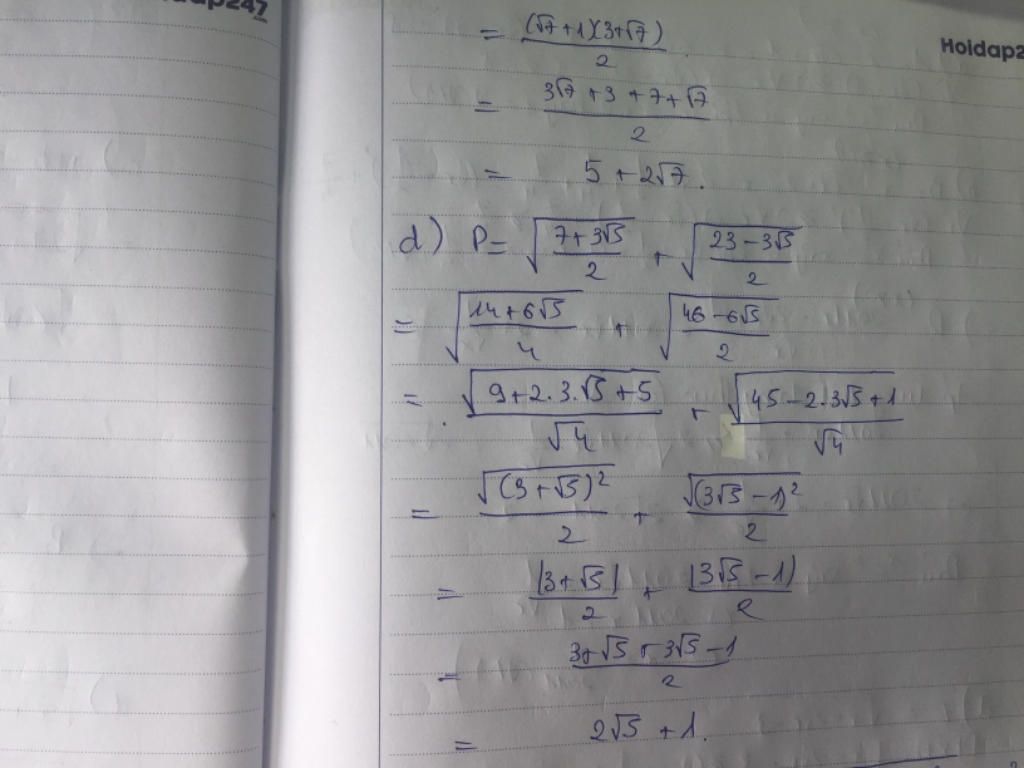 dap247
Hoidap2
= (√7 + 1)(3+√7) / 2
= 3√7 + 3 + 7 + √7 / 2
= 5 + 2√7.
d) P = √(7+3√5 / 2) + √(23-3√5 / 2)
= √(14+6√5 / 4) + √(46-6√5 / 2)
= √(9+2.3.√5+5) / √4 + √(45-2.3√5+1) / √4
= √(3+√5)² / 2 + √(3√5-1)² / 2
= |3+√5| / 2 + |3√5-1| / 2
= 3+√5+3√5-1 / 2
= 2√5 + 1.